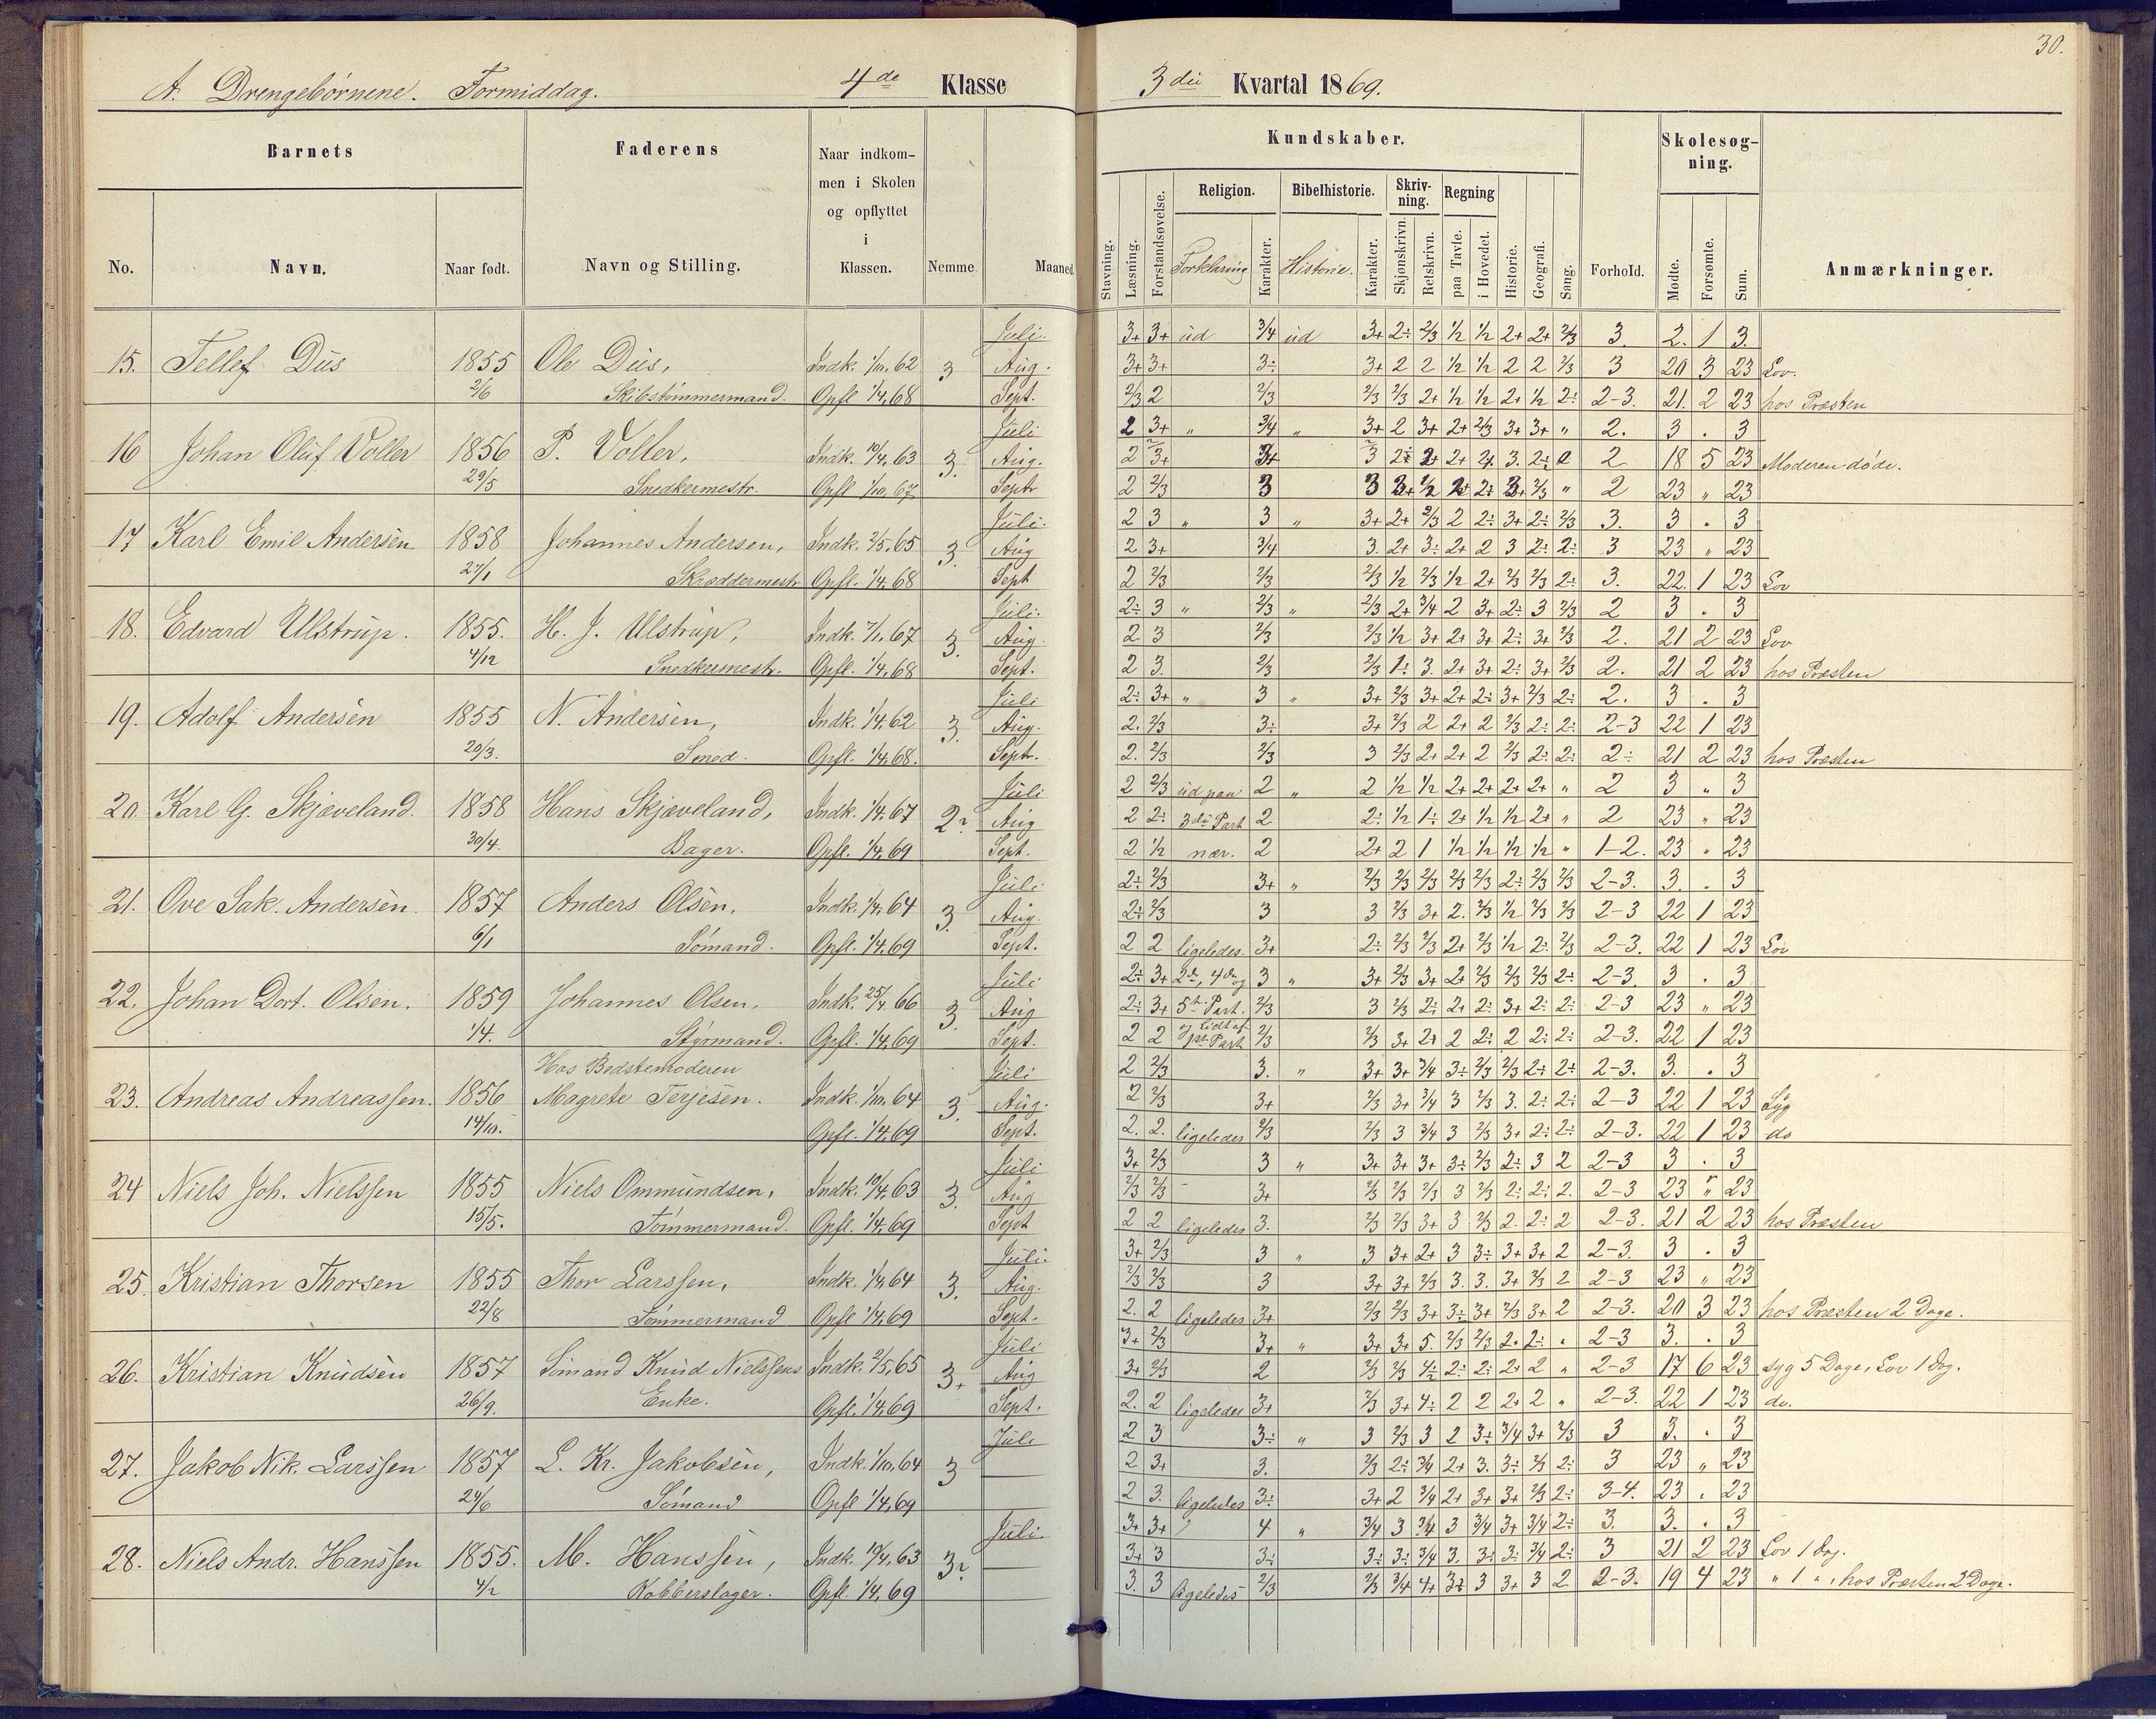 30.
A. Drengebørnene. Formiddag. 4de Klasse 3die Kvartal 1869.
Barnets Faderens Naar indkommen i Skolen og opflyttet i Klassen. Nemme Maaned
No. Navn. Naar født. Navn og Stilling.
Kundskaber. Forhold. Skolesøgning. Anmærkninger.
Stavning. Læsning. Forstandsøvelse. Religion. Forklaring Karakter. Bibelhistorie. Historie. Karakter. Skrivning. Skjønskrivn. Retskrivn. Regning paa Tavle. i Hovedet. Historie. Geografi. Sang. Mødte. Forsømte. Sum.
Juli. 3+ 3+ ud 3/4 ud 3+ 2÷ 2/3 1/2 1/2 2+ 2+ 2/3 3. 2. 1 3.
15. Tellef Dus 1855 Ole Dus, Indk. 1/10, 62 3 Aug. 3+ 3+ 3÷ 3+ 2 2 1/2 1/2 2 2 2/3 3 20 3 23 Lov.
2/6 Skibstømmermand. Opfl 1/4, 68 Sept. 2/3 2 2/3 2/3 2/3 2+ 1/2 1/2 2+ 1/2 2÷ 2-3. 21. 2 23 hos Præsten
Juli 2 3+ " 3/4 " 3+ 2 3+ 2+ 2/3 3+ 3+ " 2. 3 . 3
16 Johan Oluf Voller 1856 P. Voller, Indk. 19/4, 63 3. Aug. 2 3+ 3+ 3 2÷ 2+ 2+ 2+ 3. 2÷ 2 18 5 23 Moderen døde.
29/5 Snedkermestr. Opfl 1/10, 67 Sept 2 2/3 3 3 3+ 1/2 2+ 2÷ 3+ 2/3 " 2 23 " 23
Juli. 2 3 " 3 " 3+ 2+ 2/3 2 2÷ 3+ 2÷ 2/3 3. 3 . 3
17 Karl Emil Andersen 1858 Johannes Andersen, Indk. 2/5, 65 3. Aug 2 3+ 3/4 3. 2+ 3÷ 2+ 2 3 2÷ 2÷ 3 23 " 23
27/1 Skræddermestr Opfl. 1/4, 68 Sept 2 2/3 2/3 2/3 1/2 2/3 1/2 2+ 2/3 2/3 2÷ 3. 22. 1 23 Lov
Juli. 2÷ 3 " 2/3 " 2/3 2+ 3/4 2 3+ 2÷ 3 2/3 2 3 . 3
18. Edvard Ulstrup. 1855. H. J. Ulstrup, Indk. 7/10, 67 3. Aug. 2 3 2/3 2/3 1/2 3+ 2+ 3+ 2÷ 3+ 2/3 2. 21 2 23 Lov
4/12 Snedkermestr. Opfl. 1/4, 68 Sept. 2 3. 2/3 2/3 1÷ 3. 2+ 3+ 2÷ 3+ 2/3 2. 21 2 23 hos Præsten
Juli 2÷ 3+ " 3 " 3+ 2/3 3+ 2+ 2÷ 3+ 2/3 2÷ 2. 3 . 3
19. Adolf Andersen 1855 N. Andersen, Indk. 1/4, 62 3. Aug. 2. 2/3 3÷ 3+ 2/3 2 2+ 2 2/3 2÷ 2÷ 2-3 22 1 23
20/3. Smed. Opfl. 1/4, 68. Sept. 2. 2/3 2/3 3 2/3 2+ 2+ 2 2/3 2÷ 2÷ 2÷ 21 2 23 hos Præsten
Juli 2 2/3 ud paa 2 " 2 1/2 1/2 2+ 2+ 2+ 2+ " 2 3 " 3
20. Karl G. Skjæveland. 1858 Hans Skjæveland, Indk. 1/4, 67 2 Aug 2 2÷ 3die Part 2 2÷ 1/2 1÷ 2+ 1/2 1/2 2+ " 2 23 " 23
30/4. Bager. Opfl. 1/4, 69 Sept. 2 1/2 nær. 2 2+ 2 1 1/2 1/2 1/2 1/2 " 1-2. 23 " 23
Juli 2÷ 2/3 3+ " 2/3 2/3 2/3 2/3 2/3 2÷ 2/3 2/3 2-3. 3. . 3
21. Ove Sak. Andersen 1857 Anders Olsen, Indk. 1/4, 64 3. Aug. 2÷ 2/3 3 3 2/3 3+ 2. 2/3 1/2 2/3 2/3 2-3 22 1 23
6/1 Sømand. Opfl. 1/4, 69 Sept. 2 2 ligeledes. 3+ 2÷ 2/3 2/3 2+ 2/3 1/2 2÷ 2/3 2-3. 22 1 23 Lov
Juli 2÷ 3+ 2de, 4de og 3 " 3+ 2/3 3+ 2+ 2/3 2/3 2/3 2÷ 2-3. 3 . 3
22. Johan Dort. Olsen. 1859 Johannes Olsen, Indk. 25/4, 66 3. Aug 2÷ 3+ 5te Part. 2/3 3 2/3 2÷ 2+ 2÷ 3+ 2÷ 2÷ 2-3 23 " 23
1/4. Styrmand. Opfl. 1/4, 69 Sept. 2 2 lidt af 1ste Part 2/3 2/3 3+ 2+ 2 2÷ 2 2÷ 2÷ 2-3. 22 1 23
Hos Bedstemoderen Juli 2 2/3 3. " 3+ 3+ 3/4 3÷ 2/3 2/3 2÷ 2÷ 2-3. 3. . 3
23. Andreas Andreassen. 1856 Magrete Terjesen. Indk. 1/10, 64 3. Aug. 2 2/3 3+ 2/3 3+ 3/4 3 2/3 3. 2÷ 2÷ 2-3 22 1 23 Syg
14/10. Opfl. 1/4, 69 Sept. 2. 2. ligeledes 2/3 2/3 3 3/4 3 2/3 3+ 2÷ 2÷ 2-3. 22 1 23 do
Juli 3+ 2/3 3 " 3+ 3+ 3+ 3÷ 2/3 2÷ 3 2 2-3 3 . 3
24 Niels Joh. Nielssen 1855 Niels Ommundsen, Indk. 19/4, 63 3. Aug 2/3 2/3 3+ 2/3 2/3 2/3 3 2/3 2÷ 2÷ 2. 2-3 23 " 23
15/5. Tømmermand. Opfl. 1/4, 69 Sept 2 2 ligeledes 3. 2/3 2/3 3+ 3 2/3 2. 2÷ 2 2-3. 21 2 23 hos Præsten
Juli. 3+ 2/3 3 " 3 3+ 2+ 3 3÷ 3+ 3+ 2 2-3. 3 . 3
25. Kristian Thorsen 1855 Thor Larssen, Indk. 1/4, 64 3. Aug. 2/3 2/3 3 3+ 3+ 2/3 3. 3. 3+ 2/3 2 2-3 23 " 23
22/8 Tømmermand Opfl 1/4, 69 Sept. 2. 2 ligeledes 3+ 2/3 2/3 3+ 3÷ 3+ 2/3 3+ 2 2-3. 20 3 23 hos Præsten 2 Dage.
Juli 3+ 2/3 3+ " 3+ 3+ 5. 2/3 2/3 2+ 2÷ " 2-3 3. . 3
26. Kristian Knudsen 1857 Sømand Knud Nielssens Indk. 2/5, 65 3+ Aug 3+ 2/3 2 2/3 2/3 4÷ 2÷ 2÷ 2+ 2 " 2-3 17 6 23 syg 5 Dage, Lov 1 Dag.
26/9. Enke. Opfl. 1/4, 69 Sept. 2. 2 ligeledes 3+ 2/3 3+ 4÷ 2 2 2+ 2 " 2-3. 22 1 23 do.
Juli 2 3 3÷ " 3 2/3 3 2 3÷ 3/4 3+ 2/3 3 3. . 3
27. Jakob Nik. Larssen 1857 L. Kr. Jakobsen, Indk. 1/10, 64 3 2 3+ 3. 2/3 2÷ 3/4 2+ 3. 3÷ 2/3 2÷ 3 23 " 23
24/6 Sømand Opfl 1/4, 69 2 3. ligeledes 3÷ 3+ 2 3/4 2+ 3+ 3+ 2/3 2÷ 3-4. 23 . 23
Juli. 3+ 3+ 4 " 3/4 3 3/4 3 3/4 3+ 3/4 2÷ 3. 3. . 3
28. Niels Andr. Hanssen 1855. M. Hanssen, Indk. 19/4, 63 3 3+ 3 3÷ 3÷ 3÷ 3/4 3. 3÷ 3÷ 3/4 2÷ 3 21 2 23 Lov 1 Dag.
4/2 Kobberslager. Opfl. 1/4, 69 3. 3 ligeledes 2/3 2/3 3/4 4+ 3÷ 3 3+ 3 2 2-3. 19 4 23 " 1 ", hos Præsten 2 Dage.